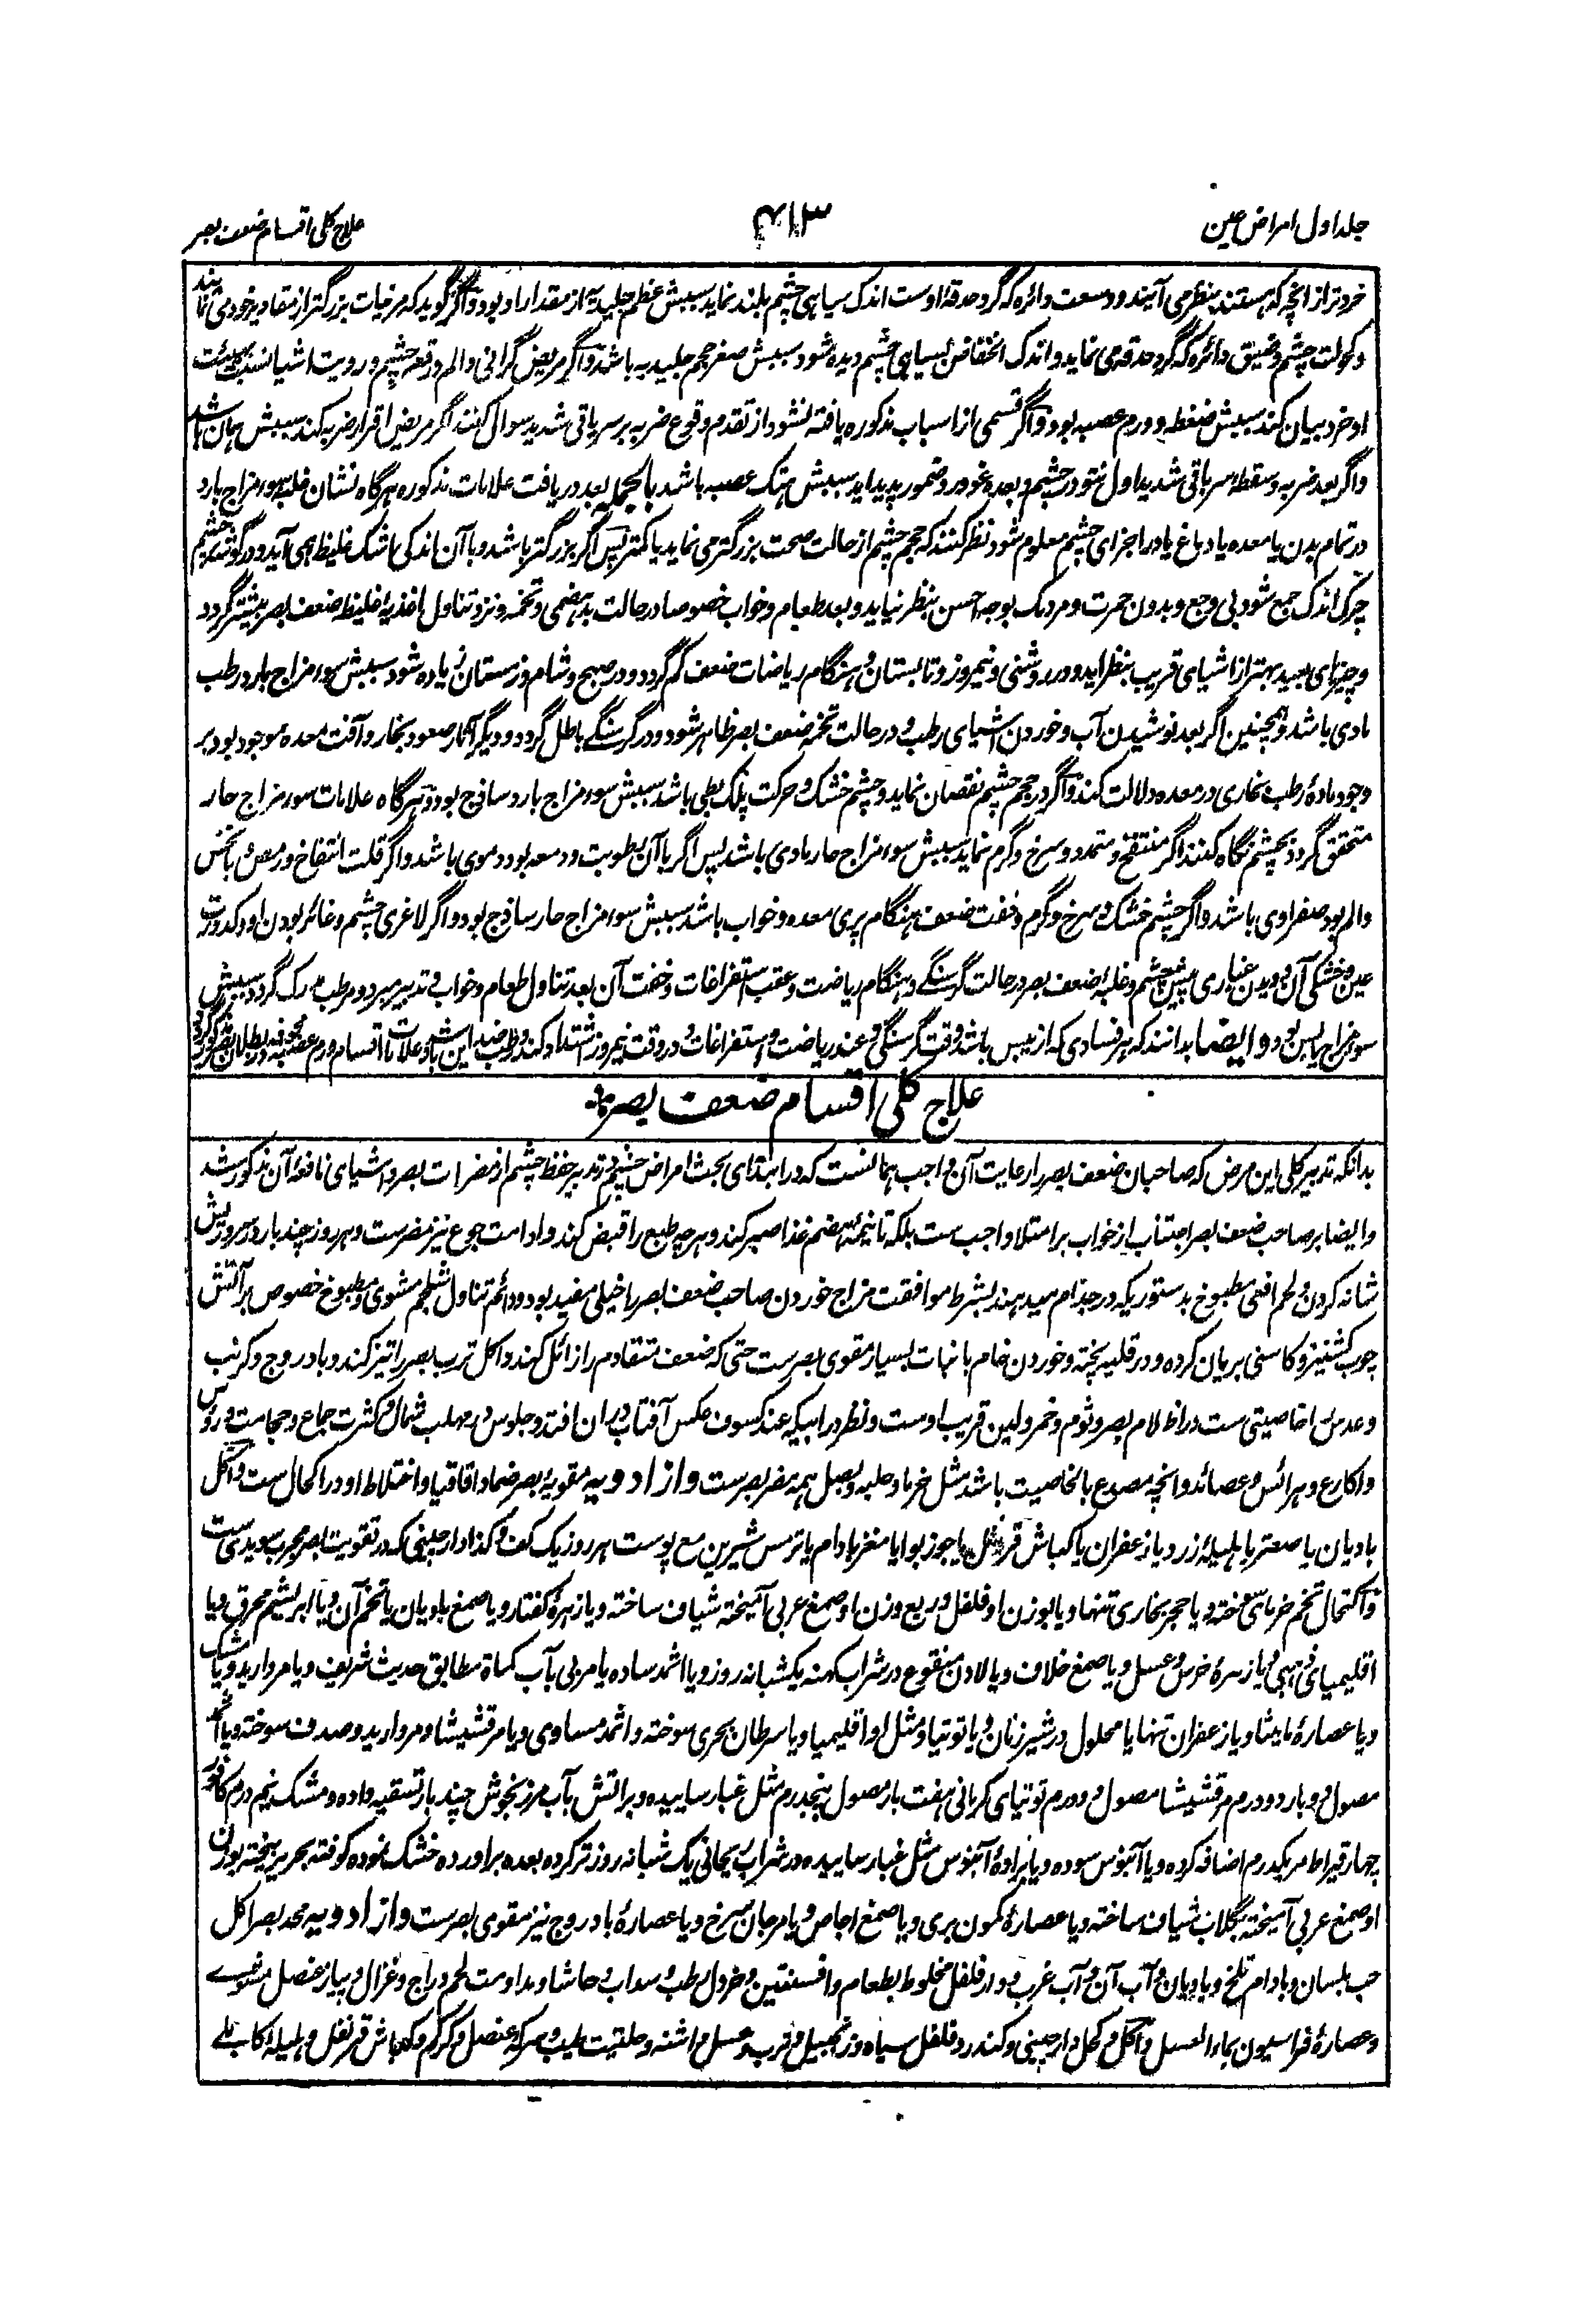 جلد اول امراض عین
علاج کلی اقسام ضعف بصر
خردتر از انچه که هستند بنظر می آیند و وسعت دائره که گرد حدقهٔ اوست اندک سیاهی چشم بلند نماید سببش عظم جلیدیه از مقدار او بود و اگر گوید که مرئیات بزرگتر از مقادیر خود می نمایند
و کوالت چشم و ضیق دائره که گرد حدقه می نماید و اندک انخفاض بسیاهی چشم دیده شود سببش صغر حجم جلیدیه باشد و اگر مریض گرانی و الم در قعر چشم و رویت اشیا
او خود بیان کند سببش ضغطه و ورم عصبه بود و اگر قسمی از اسباب مذکوره یافته نشود از تقدم وقوع ضربه بر سر یا قی شدید سوال کنند اگر مریض اقرار ضربه کند سببش همان باشد
و اگر بعد ضربه و سقطه سر یا قی شدید اول نتو در چشم و بعده غور و ضمور پدید اید سببش هتک عصب باشد بالجمله بعد دریافت علامات مذکوره هرگاه نشان غلبه سوء مزاج بارد
در تمام بدن یا معده یا دماغ یا در اجزای چشم معلوم شود نظر کنند که حجم چشم از حالت صحت بزرگتر می نماید یا کمتر پس اگر بزرگتر باشد و با آن اندکی اشک غلیظ همی آید و در گوشه چشم
چرک اندک جمع شود بی وجع و بدون حمرت و مردمک بوجه احسن بنظر نیاید و بعد طعام و خواب خصوصا در حالت بدهضمی و تخمه و نزد تناول اغذیهٔ غلیظ ضعف بصر بیشتر گردد
و چیزهای بعید بهتر از اشیای قریب بنظر اید و در روشنی و نیمروز و تابستان و هنگام ریاضات ضعف کم گردد و در صبح و شام و زمستان زیاده شود سببش سوء مزاج بارد رطب
مادی باشد و همچنین اگر بعد نوشیدن آب و خوردن اشیای رطب و در حالت تخمه ضعف بصر ظاهر شود و در گرسنگی باطل گردد و دیگر آثار صعود بخار و آفت معده موجود بود بر
وجود مادهٔ رطب بخاری در معده دلالت کند و اگر در حجم چشم نقصان نماید و چشم خشک و حرکت پلک بطی باشد سببش سوء مزاج بارد ساذج بود و هرگاه علامات سوء مزاج حار
متحقق گردد بچشم نگاه کنند اگر منتفخ و متمدد و سرخ و گرم نماید سببش سوء مزاج حار مادی باشد پس اگر با آن رطوبت و دمعه بود دموی باشد و اگر قلت انتفاخ و رمص با نخس
و الم بود صفراوی باشد و اگر چشم خشک و سرخ و گرم و خفت ضعف هنگام پری معده و خواب باشد سببش سوء مزاج حار ساذج بود و اگر لاغری چشم و غائر بودن او و کدورت
عین و خشکی آن و دیدن غباری پیش چشم و غلبهٔ ضعف بصر در حالت گرسنگی و هنگام ریاضت و عقب استفراغات و خفت آن بعد تناول طعام و خواب و تدبیر مبرد و مرطب مدرک گردد سببش
سوء مزاج یابس بود و ایضا بدانند که هر فسادی که از یبس باشد وقت گرسنگی و عند ریاضت و استفراغات و در وقت نیمروز اشتداد کند و رطب ضد این باشد و علامات اقسام ورم عصبه
علاج کلی اقسام ضعف بصر
بدانکه تدبیر کلی این مرض که صاحبان ضعف بصر را رعایت آن واجب همانست که در ابتدای بحث امراض چشم در تدبیر حفظ چشم از مضرات بصر و اشیای نافعهٔ آن مذکور شد
و ایضا بر صاحب ضعف بصر اجتناب از خواب بر امتلا واجب ست بلکه تا نیمهٔ هضم غذا صبر کند و هر چه طبع را قبض کند و ادامت جوع نیز مضر ست و هر روز چند بار و سر و ریش
شانه کردن و لحم افعی مطبوخ بدستوریکه در جذام میدهند بشرط موافقت مزاج خوردن صاحب ضعف بصر را خیلی مفید بود و دائم تناول شلجم مشوی و مطبوخ خصوص بر آتش
چوب گشنیز و کاسنی بریان کرده و در قلیه پخته و خوردن خام با نبات بسیار مقوی بصر ست حتی که ضعف متقادم را زائل کند و اکل ترب بصر را تیز کند و بادروج و کرنب
و عدس را خاصیتی ست در اظلام بصر و ثوم و خمر و لبن قریب اوست و نظر در آبیکه عند کسوف عکس آفتاب در آن افتد و جلوس در مهب شمال و کثرت جماع و حجامت و رؤس
و اکارع و هرائس و عصائد و انچه مصدع بالخاصیت باشد مثل خرما و حلبه و بصل همه مضر بصر ست و از ادویه مقویهٔ بصر ضماد اقاقیا و اختلاط او در اکحال ست و اکل
بادیان یا صعتر یا هلیلهٔ زرد یا زعفران یا کباش قرنفل یا جوز بوا یا مغز بادام یا ترمس شیرین مع پوست هر روز یک کف و کذا دارچینی که در تقویت بصر مجرب سویدی ست
و اکتحال تخم خرما سوخته و یا حجر بخاری تنها و یا بوزن او فلفل و ربع وزن او صمغ عربی آمیخته شیاف ساخته و یا زهرهٔ کفتار و یا صمغ بادیان یا تخم آن و یا ابریشم محرق و یا
اقلیمیای ذهبی و یا زهرهٔ خرس و عسل و یا صمغ خلاف و یا لادن منقوع در شراب کهنه یکشبانه روز و یا اثمد ساده یا مربی بآب کماة مطابق حدیث شریف و یا مروارید و یا مشک
و یا عصارهٔ مامیثا و یا زعفران تنها یا محلول در شیر زنان و یا توتیا و مثل او اقلیمیا و یا سرطان بحری سوخته و اثمد مساوی و یا مرقشیشا و مروارید و صدف سوخته و یا اثمد
مصول و بارد و درم مرقشیشا مصول و دو درم توتیای کرمانی هفت بار مصول پنجدرم مثل غبار ساییده و بر آتش بآب مرزنجوش چند بار تسقیه داده و مشک نیم درم کافور
چهار قیراط هر یکدرم اضافه کرده و یا آبنوس سوده و یا برادهٔ آبنوس مثل غبار ساییده در شراب ریحانی یک شبانه روز تر کرده بعده براورده خشک نموده کوفته بحریر بیخته بوزن
او صمغ عربی آمیخته بگلاب شیاف ساخته و یا عصارهٔ کمون بری و یا صمغ اجاص و یا مرجان سرخ و یا عصارهٔ بادروج نیز مقوی بصر ست و از ادویه محد بصر اکل
حب بلسان و بادام تلخ و بادیان و آب آن و آب غرب و دارفلفل مخلوط بطعام و افسنتین و خردل رطب و سداب و حاشا و مداومت لحم دراج و غزال و پیاز عنصل مشوی
و عصارهٔ فراسیون بماء العسل و اکل و کحل دارچینی و کندر و فلفل سیاه و زنجبیل و ترب و عسل و اشنه و حلتیت طیب و سرکهٔ عنصل و کرکم و کباش قرنفل و هلیلهٔ کابلی